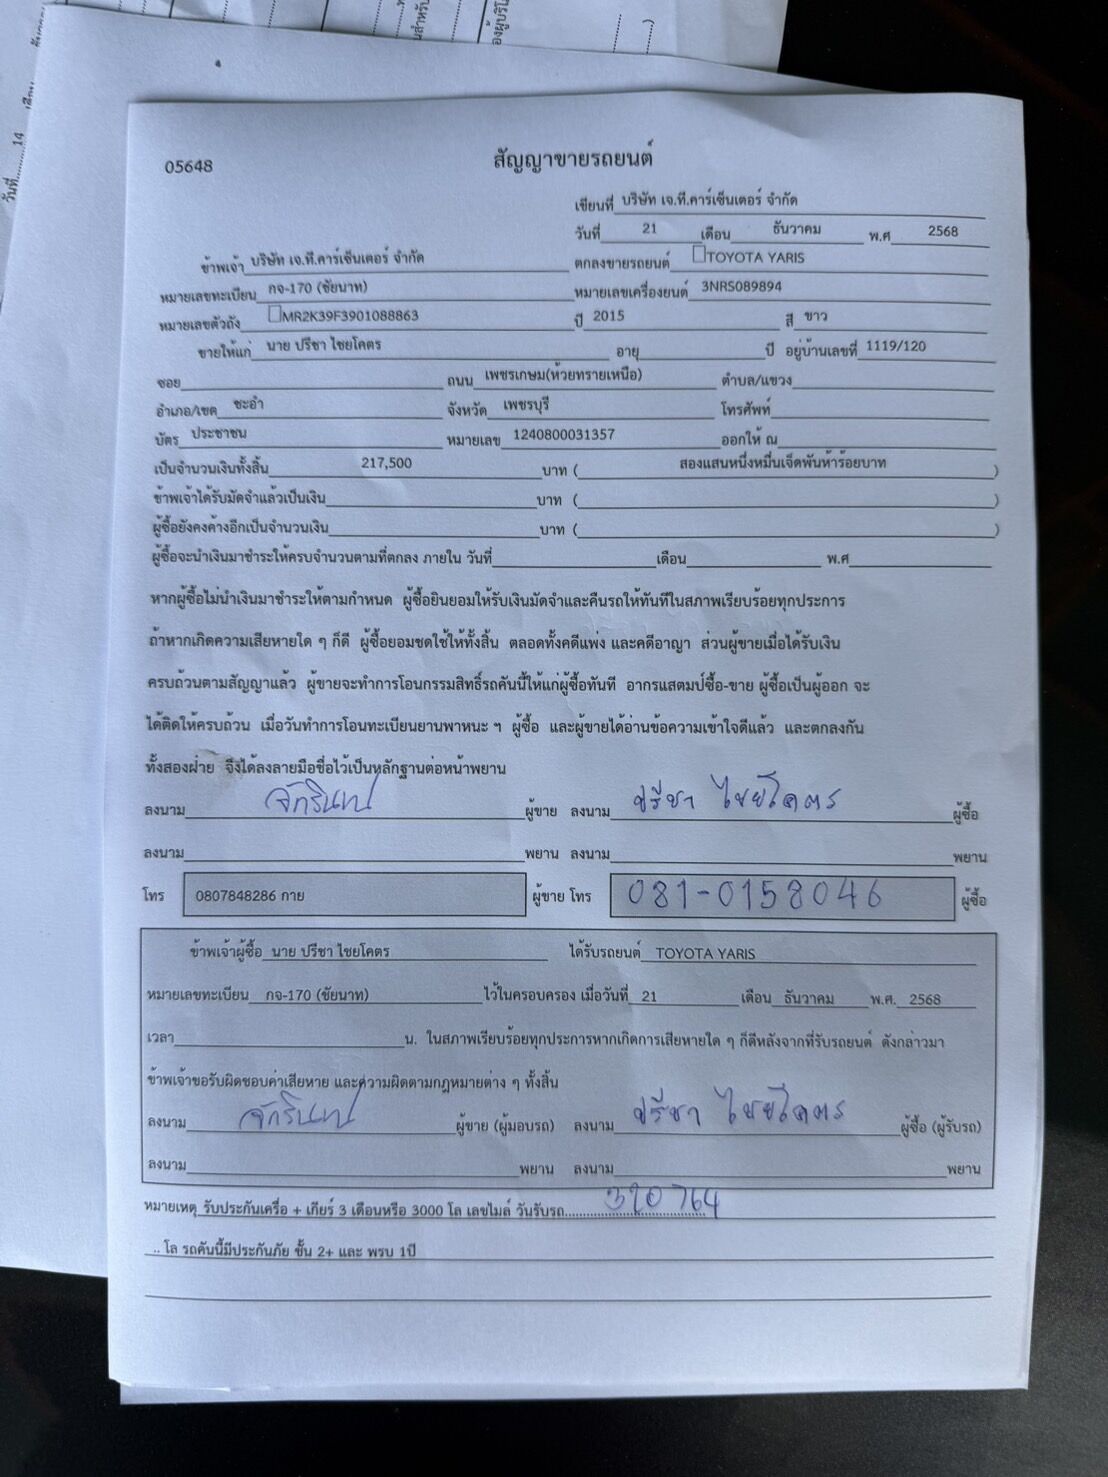 05648
สัญญาขายรถยนต์
เขียนที่ บริษัท เจ.ที.คาร์เซ็นเตอร์ จำกัด
วันที่ 21 เดือน ธันวาคม พ.ศ 2568
ข้าพเจ้า บริษัท เจ.ที.คาร์เซ็นเตอร์ จำกัด ตกลงขายรถยนต์ TOYOTA YARIS
หมายเลขทะเบียน กจ-170 (ชัยนาท) หมายเลขเครื่องยนต์ 3NRS089894
หมายเลขตัวถัง MR2K39F3901088863 ปี 2015 สี ขาว
ขายให้แก่ นาย ปรีชา ไชยโคตร อายุ ปี อยู่บ้านเลขที่ 1119/120
ซอย ถนน เพชรเกษม(ห้วยทรายเหนือ) ตำบล/แขวง
อำเภอ/เขต ชะอำ จังหวัด เพชรบุรี โทรศัพท์
บัตร ประชาชน หมายเลข 1240800031357 ออกให้ ณ
เป็นจำนวนเงินทั้งสิ้น 217,500 บาท ( สองแสนหนึ่งหมื่นเจ็ดพันห้าร้อยบาท )
ข้าพเจ้าได้รับมัดจำแล้วเป็นเงิน บาท ( )
ผู้ซื้อยังคงค้างอีกเป็นจำนวนเงิน บาท ( )
ผู้ซื้อจะนำเงินมาชำระให้ครบจำนวนตามที่ตกลง ภายใน วันที่ เดือน พ.ศ
หากผู้ซื้อไม่นำเงินมาชำระให้ตามกำหนด ผู้ซื้อยินยอมให้รับเงินมัดจำและคืนรถให้ทันทีในสภาพเรียบร้อยทุกประการ
ถ้าหากเกิดความเสียหายใด ๆ ก็ดี ผู้ซื้อยอมชดใช้ให้ทั้งสิ้น ตลอดทั้งคดีแพ่ง และคดีอาญา ส่วนผู้ขายเมื่อได้รับเงิน
ครบถ้วนตามสัญญาแล้ว ผู้ขายจะทำการโอนกรรมสิทธิ์รถคันนี้ให้แก่ผู้ซื้อทันที อากรแสตมป์ซื้อ-ขาย ผู้ซื้อเป็นผู้ออก จะ
ได้ติดให้ครบถ้วน เมื่อวันทำการโอนทะเบียนยานพาหนะ ฯ ผู้ซื้อ และผู้ขายได้อ่านข้อความเข้าใจดีแล้ว และตกลงกัน
ทั้งสองฝ่าย จึงได้ลงลายมือชื่อไว้เป็นหลักฐานต่อหน้าพยาน
ลงนาม จักรินทร์ ผู้ขาย ลงนาม ปรีชา ไชยโคตร ผู้ซื้อ
ลงนาม พยาน ลงนาม พยาน
โทร 0807848286 กาย ผู้ขาย โทร 081-0158046 ผู้ซื้อ
ข้าพเจ้าผู้ซื้อ นาย ปรีชา ไชยโคตร ได้รับรถยนต์ TOYOTA YARIS
หมายเลขทะเบียน กจ-170 (ชัยนาท) ไว้ในครอบครอง เมื่อวันที่ 21 เดือน ธันวาคม พ.ศ. 2568
เวลา น. ในสภาพเรียบร้อยทุกประการหากเกิดการเสียหายใด ๆ ก็ดีหลังจากที่รับรถยนต์ ดังกล่าวมา
ข้าพเจ้าขอรับผิดชอบค่าเสียหาย และความผิดตามกฎหมายต่าง ๆ ทั้งสิ้น
ลงนาม จักรินทร์ ผู้ขาย (ผู้มอบรถ) ลงนาม ปรีชา ไชยโคตร ผู้ซื้อ (ผู้รับรถ)
ลงนาม พยาน ลงนาม พยาน
หมายเหตุ รับประกันเครื่อ + เกียร์ 3 เดือนหรือ 3000 โล เลขไมล์ วันรับรถ 320764
.. โล รถคันนี้มีประกันภัย ชั้น 2+ และ พรบ 1ปี